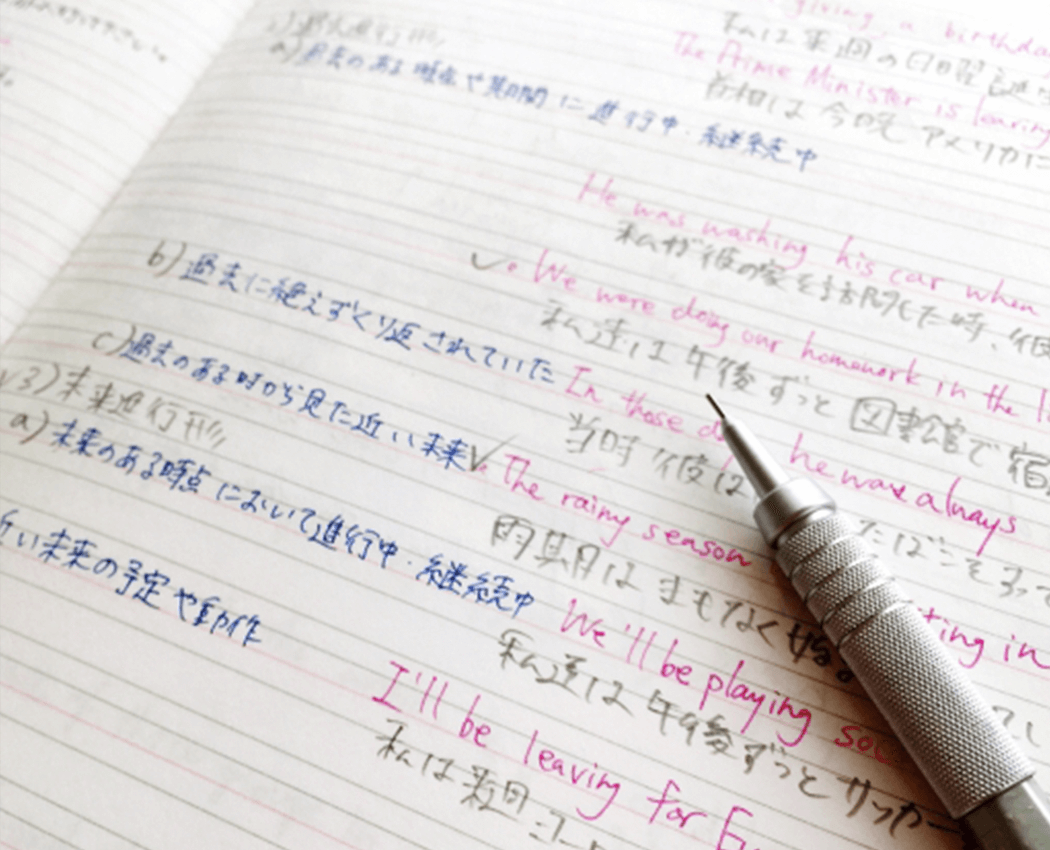 2) 過去進行形
a) 過去のある時点や期間に進行中・継続中
b) 過去に絶えずくり返されていた
c) 過去のある時から見た近い未来
3) 未来進行形
a) 未来のある時点において進行中・継続中
近い未来の予定や動作
giving a birthday
私は来週の日曜
The Prime Minister is leaving
首相は今晩アメリカに
He was washing his car when
私が彼の家を訪問した時、彼
We were doing our homework in the
私達は午後ずっと図書館で宿
In those he was always
当時彼は たばこをすって
The rainy season ting in
雨期は まもなく始ま
We'll be playing soc
私達は午後ずっとサッカー
I'll be leaving for
私は数日